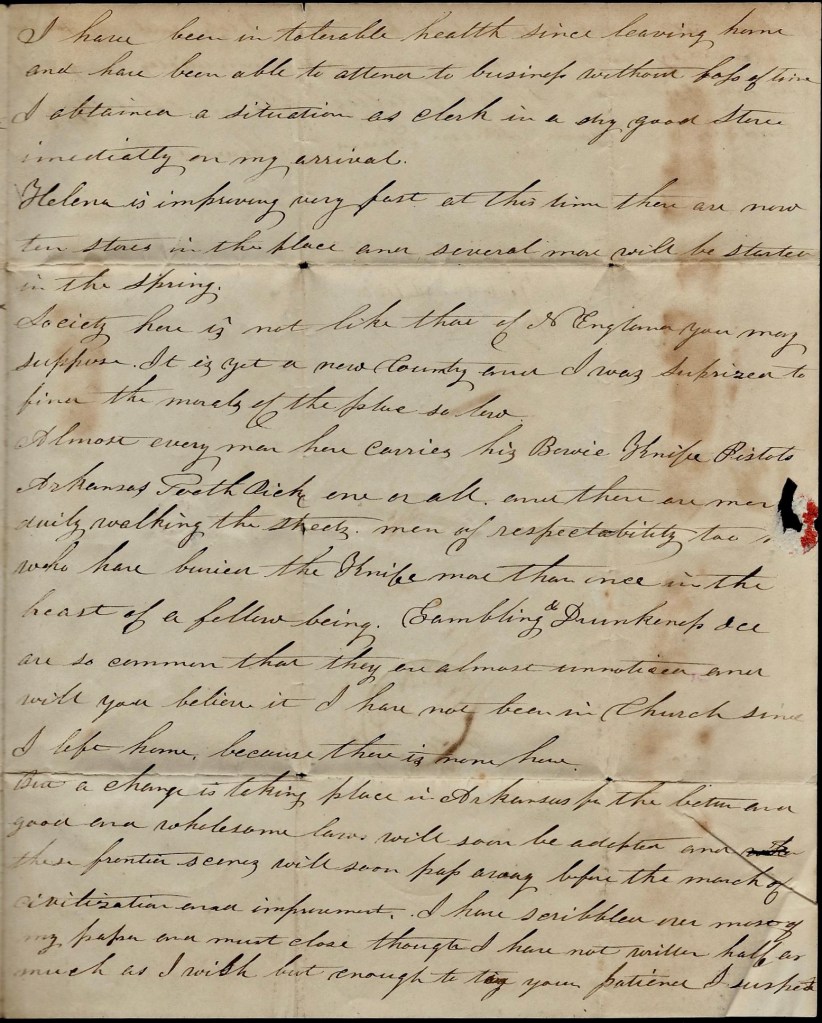 I have been in tolerable health since leaving home
and have been able to attend to business without loss of time
I obtained a situation as clerk in a dry good store
imediatly on my arrival.
Helena is improving very fast at this time there are now
ten stores in the place and several more will be started
in the spring.
Society here is not like that of N England you may
suppose. It is yet a new County and I was suprized to
find the morals of the place so low
Almost every man here carries his Bowie Knife Pistols
Arkansas Tooth Pick one or all. and there are men
daily walking the streets. men of respectability too
who have buried the Knife more than once in the
heart of a fellow being. Gambling & Drunkeness &cc
are so common that they are almost unnoticed and
will you believe it I have not been in Church since
I left home, because there is none here.
But a change is taking place in Arkansas for the better and
good and wholesome laws will soon be adopted and
these frontier scenes will soon pass away before the march of
civilization and improvement. I have scribbled over most of
my paper and must close though I have not written half as
much as I wish but enough to try your patience I suspect